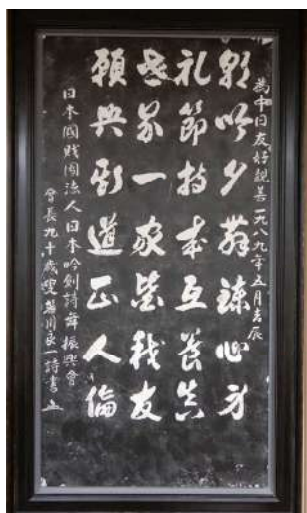 為中日友好親善一九八九年五月吉辰
朝吟夕舞錬心身
礼節持本互養真
世界一家皆我友
願興斯道正人倫
日本國財団法人日本吟剣詩舞振興會
會長九十歳叟笹川良一詩書